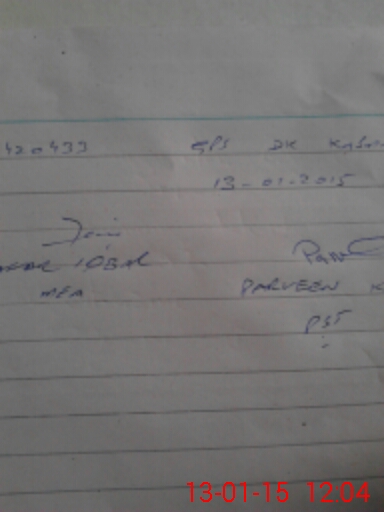 420433 GPS DK
13-01-2015
IQBAL
MEA PARVEEN K
PST
13-01-15 12:04